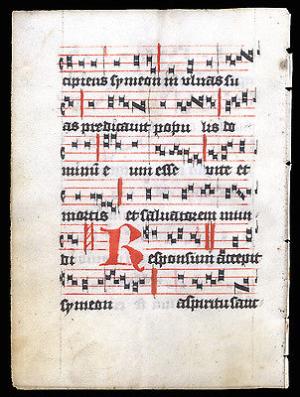 cipiens symeon in ulnas su
as predicavit popu lis do
minū e um esse vite et
mortis et salvatorem mun
di Responsum accepit
symeon a spiritu sanc